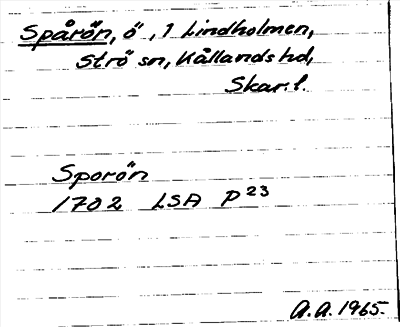 Spårön, ö, 1 Lindholmen,
Strö sn, Kållands hd,
Skar.l.
Sporön
1702 LSA P23
A.A. 1965.